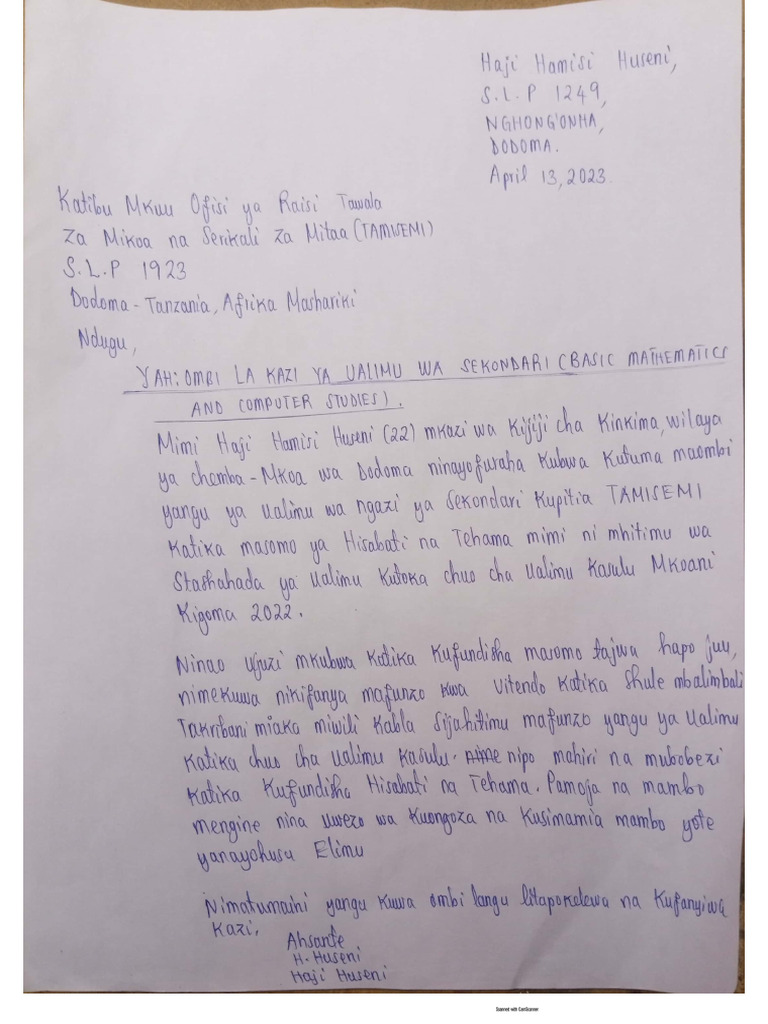 Haji Hamisi Huseni,
S.L.P 1249,
NGHONG'ONHA,
DODOMA.
April 13, 2023.
Katibu Mkuu Ofisi ya Raisi Tawala
Za Mikoa na Serikali Za Mitaa (TAMISEMI)
S.L.P 1923
Dodoma - Tanzania, Afrika Mashariki
Ndugu,
YAH: OMBI LA KAZI YA UALIMU WA SEKONDARI (BASIC MATHEMATICS
AND COMPUTER STUDIES).
Mimi Haji Hamisi Huseni (22) mkazi wa Kijiji cha Kinkima, wilaya
ya chemba - Mkoa wa Dodoma ninayofuraha Kubwa Kutuma maombi
yangu ya Ualimu wa ngazi ya Sekondari Kupitia TAMISEMI
Katika masomo ya Hisabati na Tehama mimi ni mhitimu wa
Stashahada ya Ualimu Kutoka chuo cha Ualimu Kasulu Mkoani
Kigoma 2022.
Ninao Ujuzi mkubwa Katika Kufundisha masomo tajwa hapo juu,
nimekuwa nikifanya mafunzo kwa Vitendo Katika Shule mbalimbali
Takribani miaka miwili Kabla Sijahitimu mafunzo yangu ya Ualimu
Katika chuo cha Ualimu Kasulu. nine nipo mahiri na mubobezi
Katika Kufundisha Hisabati na Tehama. Pamoja na mambo
mengine nina Uwezo wa Kuongoza na Kusimamia mambo yote
yanayohusu Elimu
Nimatumaini yangu Kuwa ombi langu litapokelewa na Kufanyiwa
Kazi.
Ahsante
H. Huseni
Haji Huseni
Scanned with CamScanner